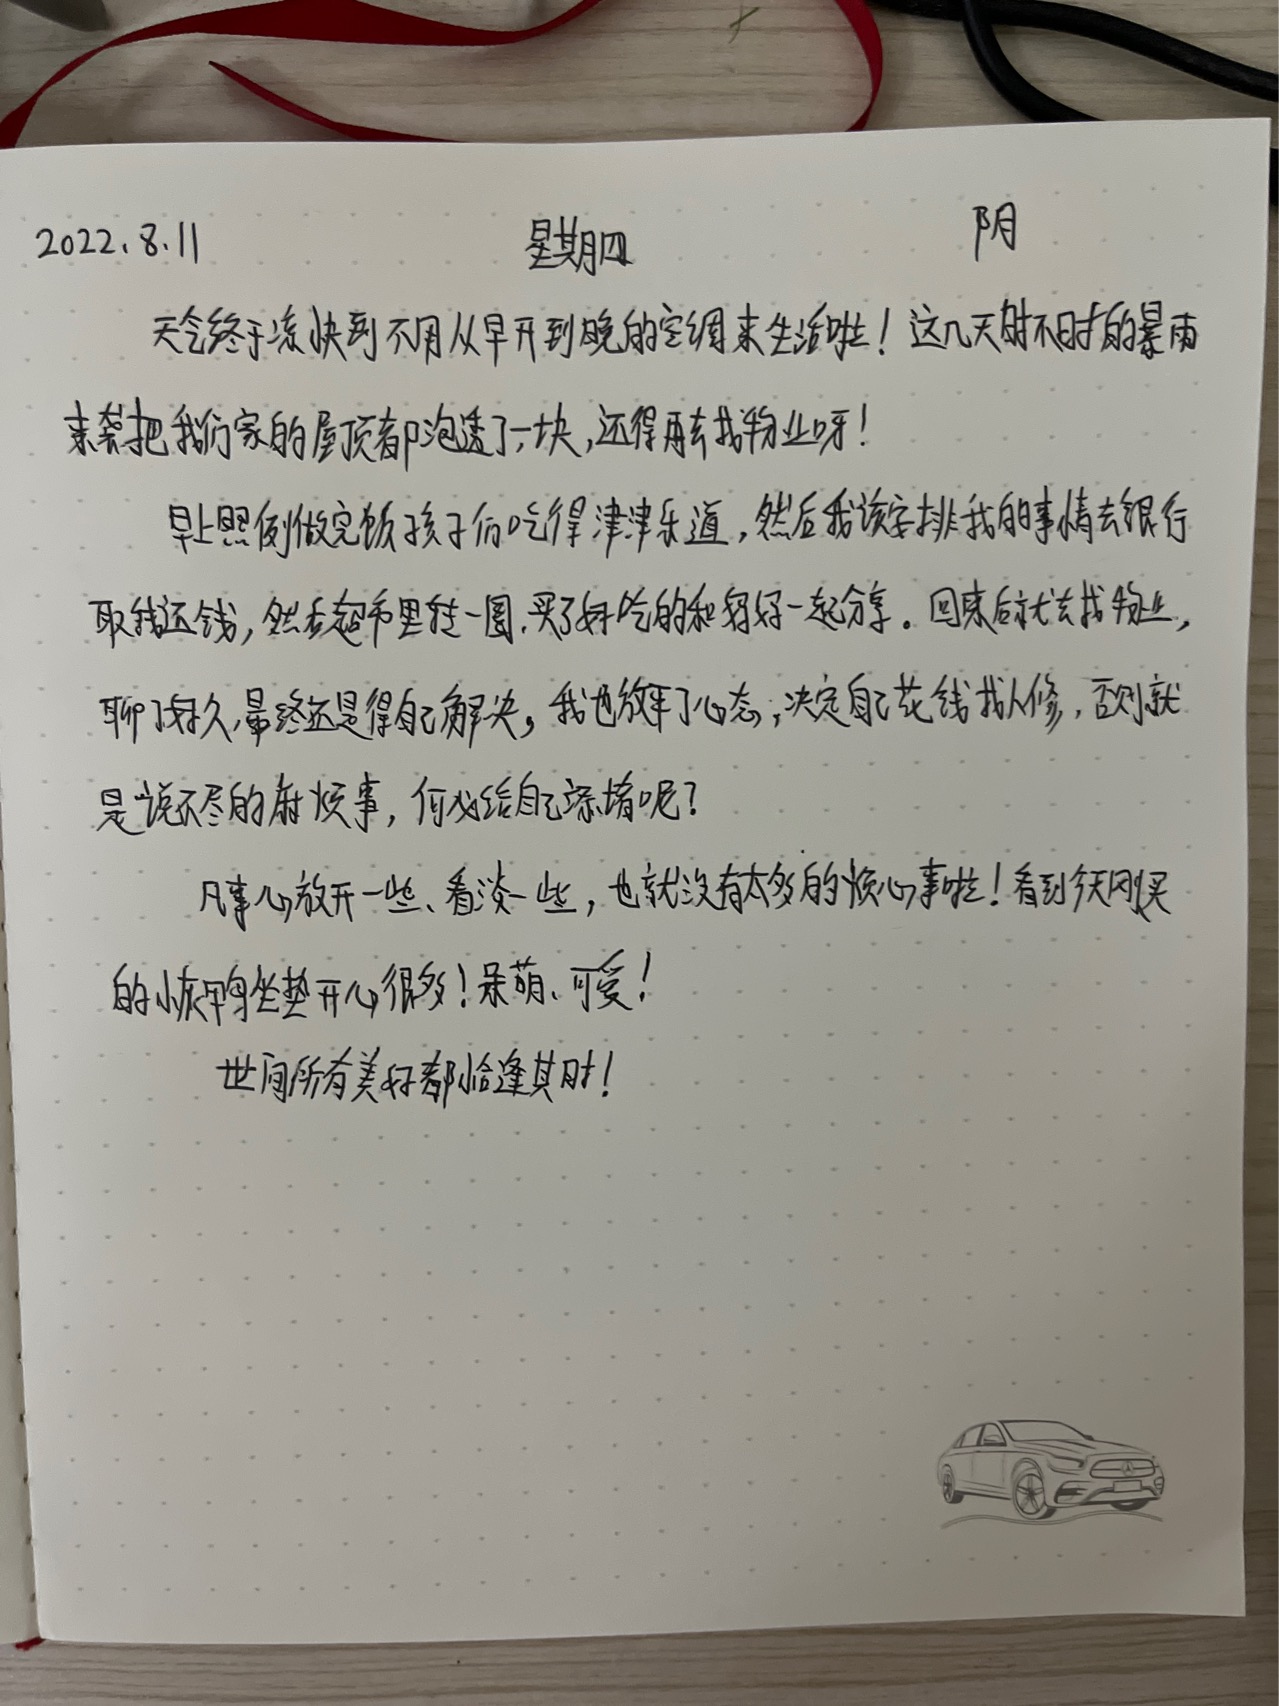 2022.8.11 星期四 阴
天气终于凉快到不用从早开到晚的空调来生活啦！这几天时不时的暴雨
来袭把我们家的屋顶都泡透了一块，还得再去找物业呀！
早上照例做完饭孩子们吃得津津乐道，然后我该安排我的事情去银行
取钱还钱，然后超市里转一圈，买了好吃的和好一起分享。回来后就去找物业，
聊了好久，最终还是得自己解决，我也放平了心态，决定自己花钱找人修，否则就
是说不尽的麻烦事，何必给自己添堵呢？
凡事心放开一些、看淡一些，也就没有太多的烦心事啦！看到今天网买
的小灰鸭坐垫开心很多！呆萌、可爱！
世间所有美好都恰逢其时！